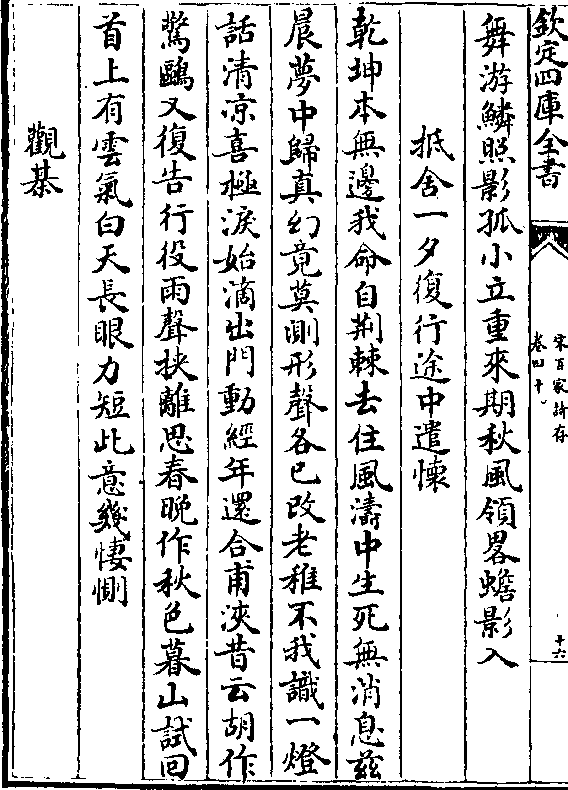 欽定四庫全書
宋百家詩存
卷四十
十六
舞游鱗照影孤小立重來期秋風領畧蟾影入
抵舍一夕復行途中遣懷
乾坤本無邊我命自荆棘去住風濤中生死無消息兹
晨夢中歸真幻竟莫測形聲各已改老稚不我識一燈
話清凉喜極淚始滴出門動經年還合甫浹昔云胡作
驚鷗又復告行役雨聲抉離思春晚作秋色暮山試回
首上有雲氣白天長眼力短此意幾悽惻
觀棊